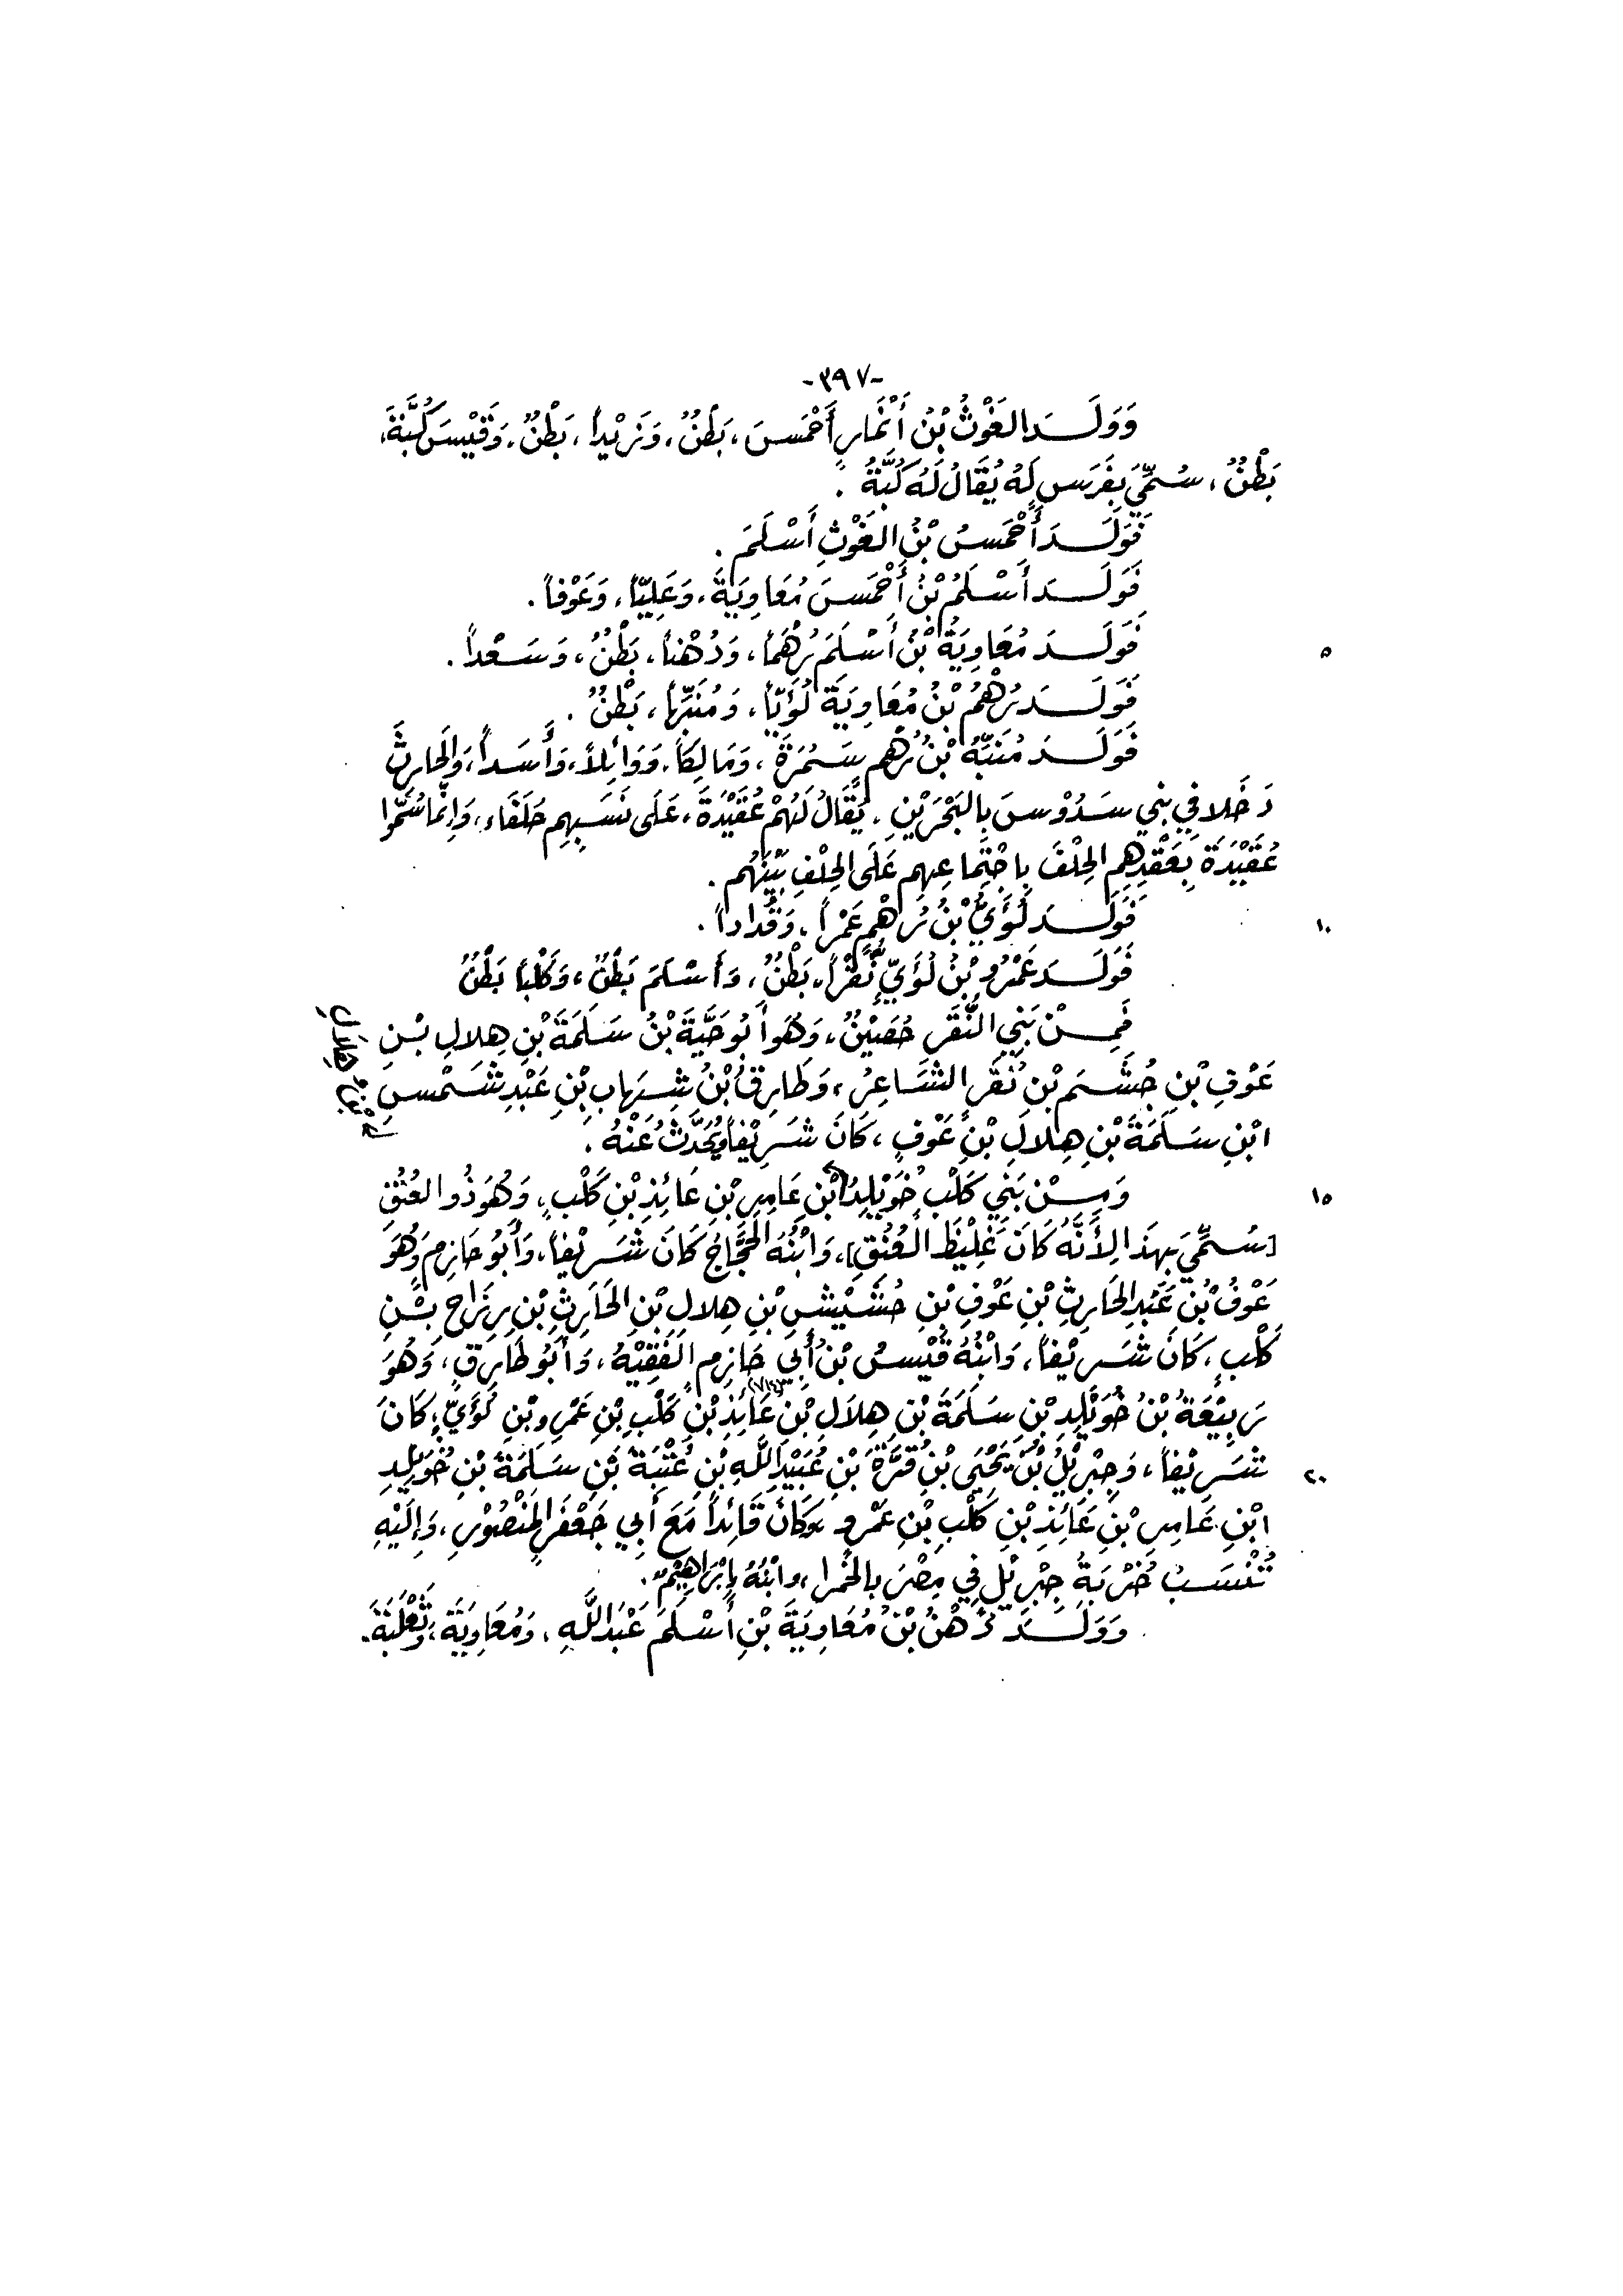 -٣٩٧-
وَوَلَـــدَ الغَوْثُ بْنُ أَنْمَارٍ أَحْمَسَ، بَطْنٌ، وَزَيْداً، بَطْنٌ، وَقَيْسَ كُبَّةَ،
بَطْنٌ، سُمِّيَ بِفَرَسٍ لَهُ يُقَالُ لَهُ كُبَّةُ.
فَوَلَـــدَ أَحْمَسُ بْنُ الغَوْثِ أَسْلَمَ.
فَوَلَـــدَ أَسْلَمُ بْنُ أَحْمَسَ مُعَاوِيَةَ، وَعَلِيّاً، وَعَوْفاً.
٥ فَوَلَـــدَ مُعَاوِيَةُ بْنُ أَسْلَمَ رُهْمَاً، وَدُهْناً، بَطْنٌ، وَسَعْداً.
فَوَلَـــدَ رُهْمُ بْنُ مُعَاوِيَةَ لُؤَيّاً، وَمُنَبِّهاً، بَطْنٌ.
فَوَلَـــدَ مُنَبِّهُ بْنُ رُهْمٍ سَمُرَةَ، وَمَالِكاً، وَوَائِلاً، وَأَسَداً، وَالحَارِثَ
دَخَلا فِي بَنِي سَدُوْسَ بِالبَحْرَيْنِ، يُقَالُ لَهُمْ عُقَيْدَةَ، عَلَى نَسَبِهِم حُلَفَاء، وَإِنَّمَا سُمُّوا
عُقَيْدَةَ بِعَقْدِهِم الحِلْفَ بِاجْتِمَاعِهِم عَلَى الحِلْفِ بَيْنَهُم.
١٠ فَوَلَـــدَ لُؤَيُّ بْنُ رُهْمٍ عَمْراً، وَقُداداً.
فَوَلَـــدَ عَمْرُو بْنُ لُؤَيٍّ نُقْراً، بَطْنٌ، وَأَسْلَمَ بَطْنٌ، وَكَلْباً بَطْنٌ
فَمِـــنْ بَنِي النُّقَرِ حُصَيْنٌ، وَهُوَ أَبُو حَيَّةَ بْنُ سَلَمَةَ بْنِ هِلالِ بْـنِ
عَوْفِ بْنِ جُشَـمَ بْنِ نُقَرَ الشَّاعِرُ، وَطَارِقُ بْنُ شِهَابِ بْنِ عَبْدِ شَمْسِ
ابْنِ سَلَمَةَ بْنِ هِلالِ بْنِ عَوْفٍ، كَانَ شَرِيْفاً وَيُحَدَّثُ عَنْهُ.
١٥ وَمِـــنْ بَنِي كَلْبٍ خُوَيْلِدُ ابْنِ عَامِرِ بْنِ عَائِذِ بْنِ كَلْبٍ، وَهُوَ ذُو العُنُقِ
[سُمِّيَ بِهَذَا لأَنَّهُ كَانَ غَلِيْظَ العُنُقِ]، وَابْنُهُ الحَجَّاجُ كَانَ شَرِيْفاً، وَأَبُو حَازِمٍ وَهُوَ
عَوْفُ بْنُ عَبْدِ الحَارِثِ بْنِ عَوْفِ بْنِ حُشَيْشِ بْنِ هِلالِ بْنِ الحَارِثِ بْنِ رِزَاحِ بْـنِ
كَلْبٍ، كَانَ شَرِيْفاً، وَابْنُهُ قَيْسُ بْنُ أَبِي حَازِمٍ الفَقِيْهُ، وَأَبُو طَارِقٍ، وَهُوَ
رَبِيْعَةُ بْنُ خُوَيْلِدِ بْنِ سَلَمَةَ بْنِ هِلَالِ بْنِ عَائِذِ بْنِ كَلْبِ بْنِ عَمْرِو بْنِ لُؤَيٍّ، كَانَ
٢٠ شَرِيْفاً، وَجِبْرِيْلُ بْنُ يَحْيَى بْنِ قُرَّةَ بْنِ عُبَيْدِ اللَّهِ بْنِ عُتْبَةَ بْنِ سَلَمَةَ بْنِ خُوَيْلِدِ
ابْنِ عَامِرِ بْنِ عَائِذِ بْنِ كَلْبِ بْنِ عَمْرٍو وَكَانَ قَائِداً مَعَ أَبِي جَعْفَرٍ المَنْصُوْرِ، وَإِلَيْهِ
تُنْسَبُ خَرْبَةُ جِبْرِيْلَ فِي مِصْرَ بِالحَمْرا، وابْنُهُ إِبْرَاهِيْمُ.
وَوَلَـــدَ دُهْنُ بْنُ مُعَاوِيَةَ بْنِ أَسْلَمَ عَبْدَ اللَّهِ، وَمُعَاوِيَةَ، وَثَعْلَبَةَ.